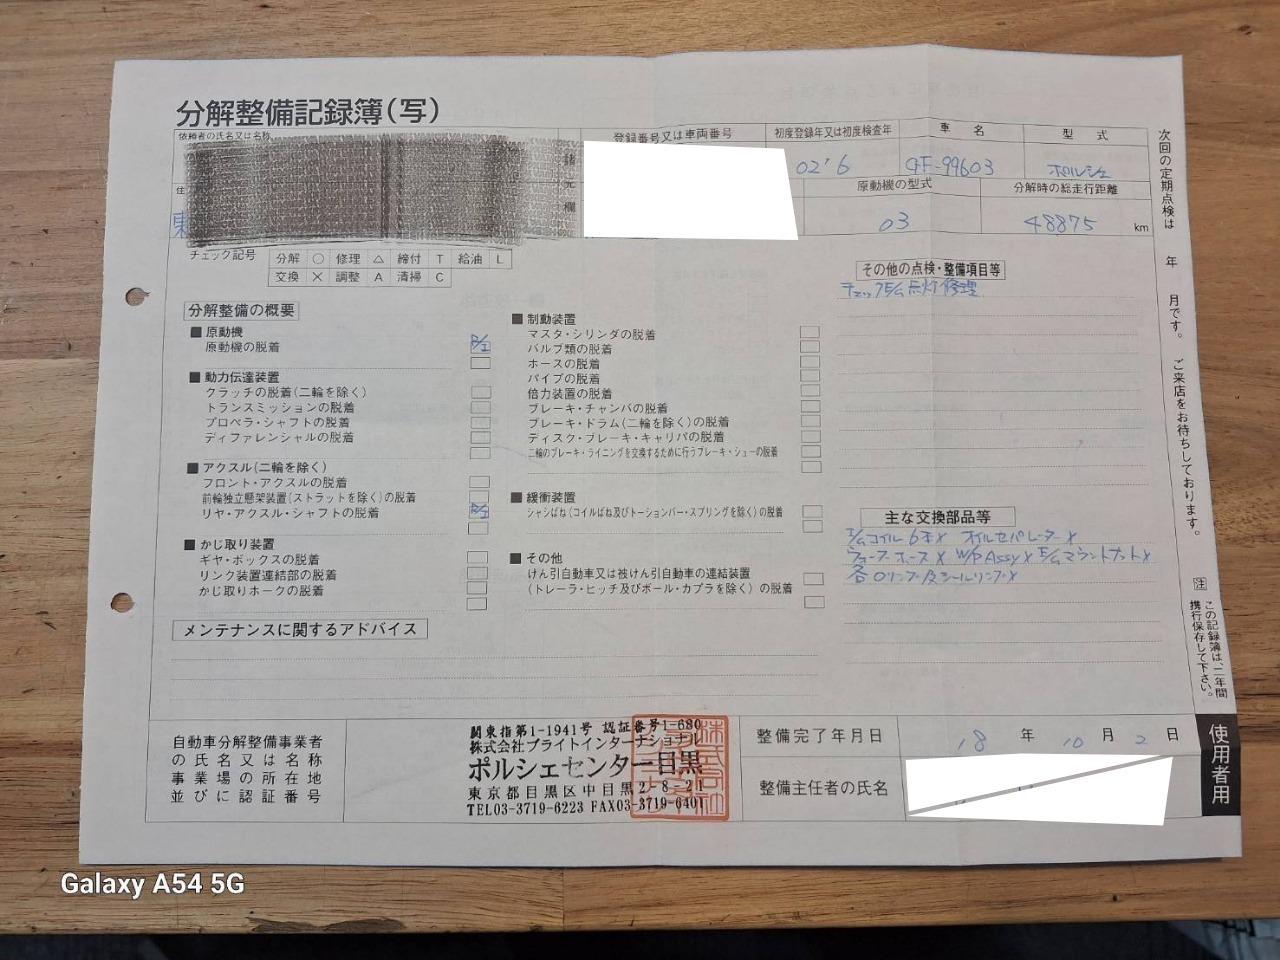 分解整備記録簿(写)
依頼者の氏名又は名称
登録番号又は車両番号
初度登録年又は初度検査年
車名
型式
02'6
GF-99603
ポルシェ
住
東
諸元欄
原動機の型式
分解時の総走行距離
03
48875 km
チェック記号
分解 ○ 修理 △ 締付 T 給油 L
交換 × 調整 A 清掃 C
分解整備の概要
■ 原動機
原動機の脱着
R/I
■ 動力伝達装置
クラッチの脱着(二輪を除く)
トランスミッションの脱着
プロペラ・シャフトの脱着
ディファレンシャルの脱着
■ アクスル(二輪を除く)
フロント・アクスルの脱着
前輪独立懸架装置(ストラットを除く)の脱着
リヤ・アクスル・シャフトの脱着
R/I
■ かじ取り装置
ギヤ・ボックスの脱着
リンク装置連結部の脱着
かじ取りホークの脱着
■ 制動装置
マスタ・シリンダの脱着
バルブ類の脱着
ホースの脱着
パイプの脱着
倍力装置の脱着
ブレーキ・チャンバの脱着
ブレーキ・ドラム(二輪を除く)の脱着
ディスク・ブレーキ・キャリパの脱着
二輪のブレーキ・ライニングを交換するために行うブレーキ・シューの脱着
■ 緩衝装置
シャシばね(コイルばね及びトーションバー・スプリングを除く)の脱着
■ その他
けん引自動車又は被けん引自動車の連結装置
(トレーラ・ヒッチ及びボール・カプラを除く)の脱着
その他の点検・整備項目等
チェックE/G点灯修理
主な交換部品等
I/Gコイル6本× オイルセパレーター×
ウォーターホース× W/P Assy× E/Gマウントナット×
各Oリング及シールリング×
メンテナンスに関するアドバイス
次回の定期点検は 年 月です。ご来店をお待ちしております。
注 この記録簿は、二年間
携行保存して下さい。
使用者用
自動車分解整備事業者
の氏名又は名称
事業場の所在地
並びに認証番号
関東指第1-1941号 認証番号1-680
株式会社ブライトインターナショナル
ポルシェセンター目黒
東京都目黒区中目黒2-8-21
TEL03-3719-6223 FAX03-3719-6401
整備完了年月日
18 年 10 月 2 日
整備主任者の氏名
Galaxy A54 5G